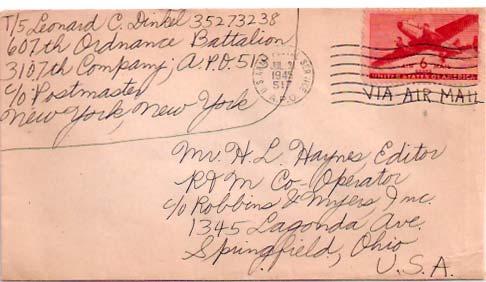 T/5 Leonard C. Dinkel 35273238
607th Ordnance Battalion
3107th Company; A.P.O. 513
c/o Postmaster
New York, New York
U.S. ARMY POSTAL SERVICE
JUL
1945
517
A.P.O.
AIR 6 MAIL
UNITED STATES OF AMERICA
VIA AIR MAIL
Mr. H. L. Haynes, Editor
R & M Co-Operator
c/o Robbins & Myers Inc.
1345 Lagonda Ave.
Springfield, Ohio
U.S.A.